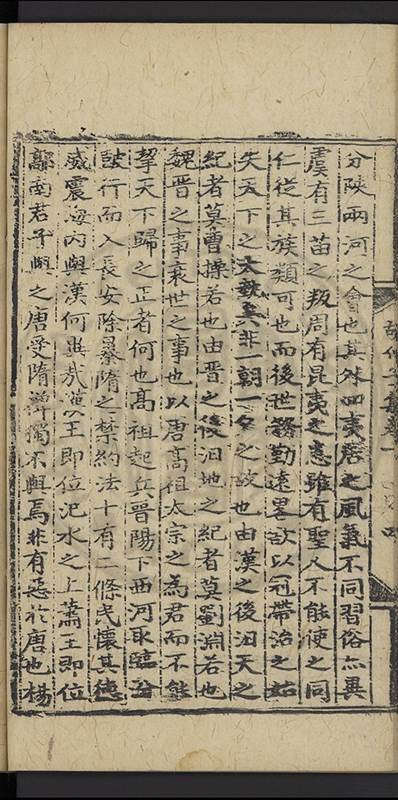 分陝兩河之會也其外四夷居之風氣不同習俗亦異
虞有三苗之叛周有昆夷之患雖有聖人不能使之同
仁從其族類可也而後世務勤遠畧欲以冠帶治之始
失天下之大執矣非一朝一夕之故也由漢之後汨天之
紀者莫曹操若也由晋之後汨地之紀者莫劉淵若也
魏晋之事衰世之事也以唐高祖太宗之為君而不能
挈天下歸之正者何也高祖起兵晋陽下西河取臨汾
鼓行而入長安除暴隋之禁約法十有二條民懷其德
威震海內與漢何異哉漢王即位汜水之上蕭王即位
鄗南君子與之唐受隋禪獨不與焉非有惡於唐也楊